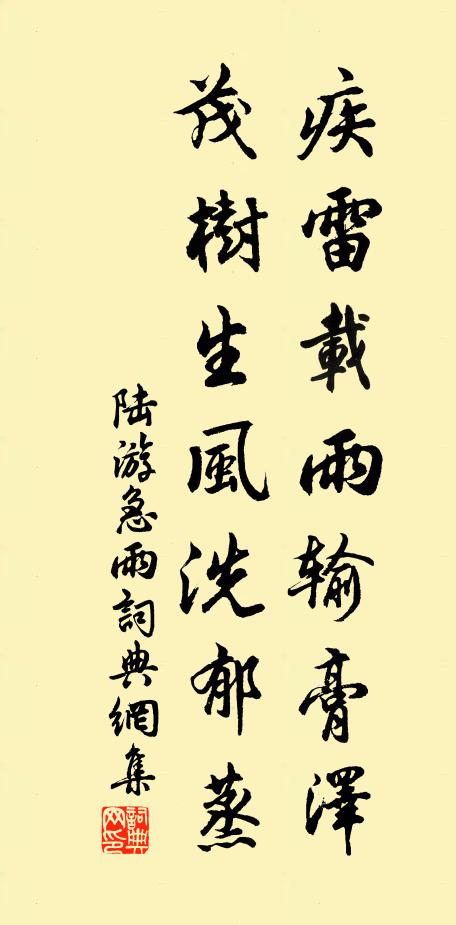 疾雷載雨输膏澤
茂樹生風洗郁蒸
陆游急雨詞典網集
詞典网印